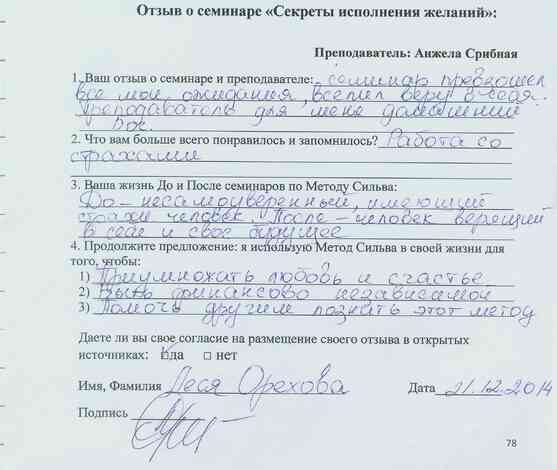 Отзыв о семинаре «Секреты исполнения желаний»:
Преподаватель: Анжела Срибная
1. Ваш отзыв о семинаре и преподавателе: семинар превзошел
все мои ожидания, вселил веру в себя.
Преподаватель для меня домашний
Бог.
2. Что вам больше всего понравилось и запомнилось? Работа со
страхами
3. Ваша жизнь До и После семинаров по Методу Сильва:
До – несамоуверенный, имеющий
страхи человек. После – человек верящий
в себя и свое будущее
4. Продолжите предложение: я использую Метод Сильва в своей жизни для
того, чтобы:
1) Приумножать любовь и счастье
2) Быть финансово независимой
3) Помочь другим познать этот метод
Даете ли вы свое согласие на размещение своего отзыва в открытых
источниках: да □ нет
Имя, Фамилия Леся Орехова Дата 21.12.2014
Подпись
78